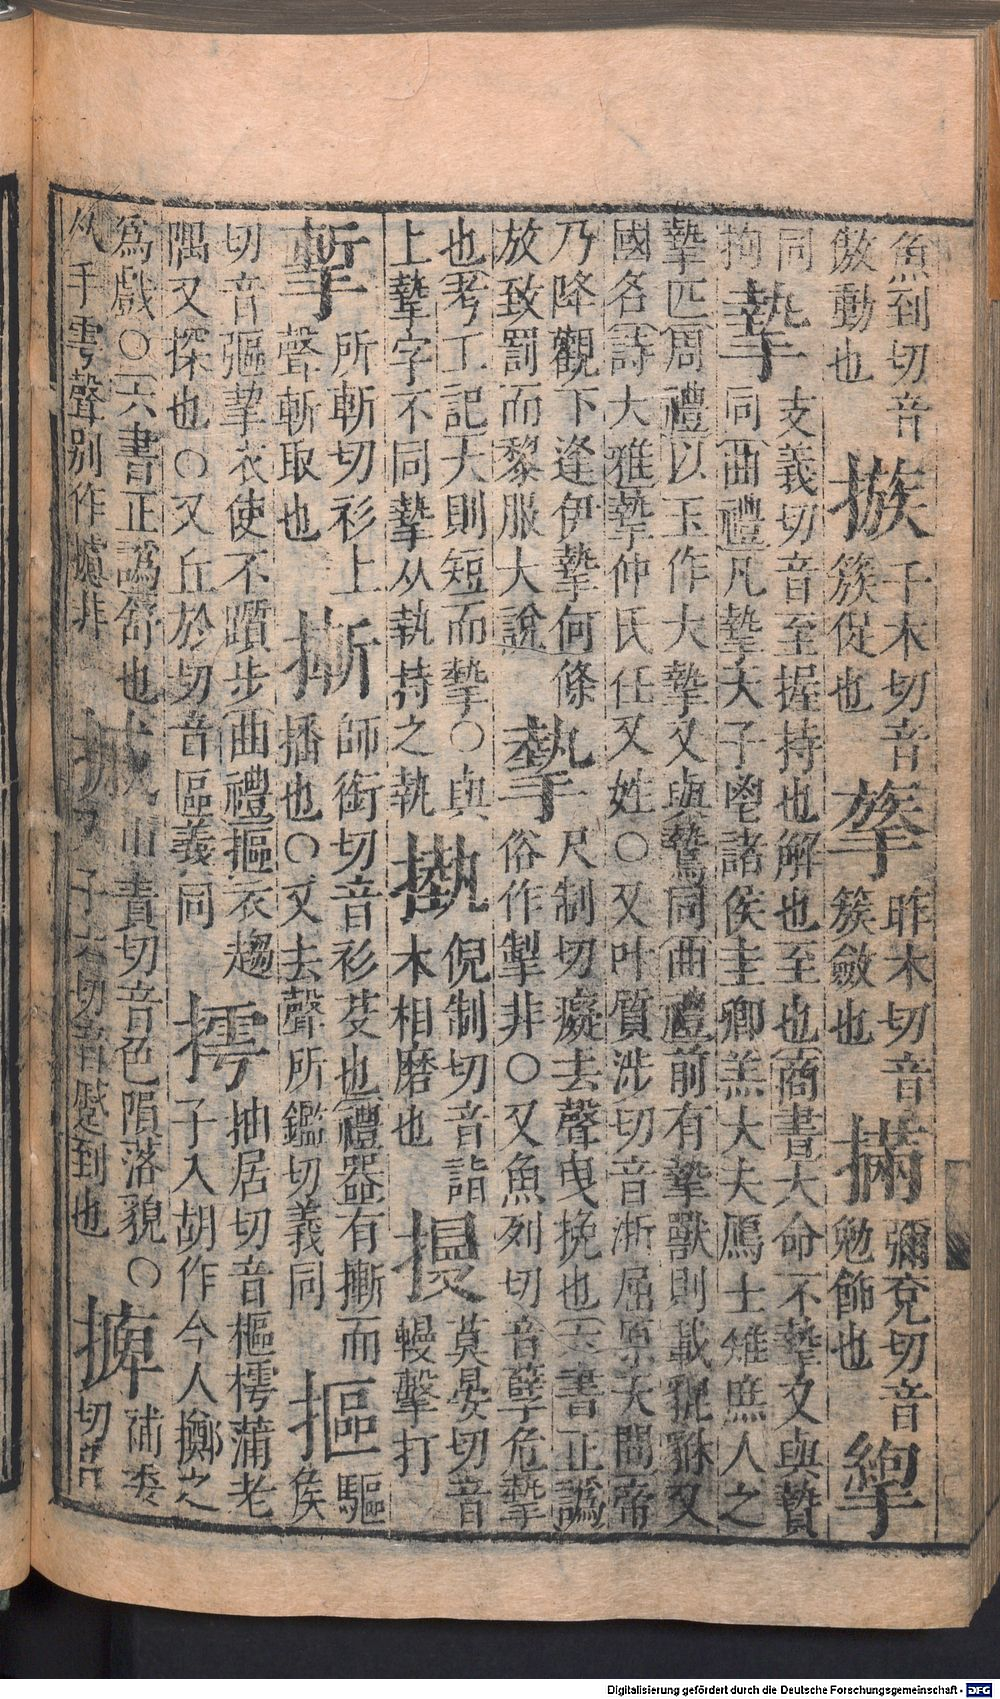 魚到切音
傲動也
㨞
千木切音
簇促也
㧻
昨木切音
簇斂也
㨠
彌兖切音
勉飾也
㨋
同
拘
摯
支義切音至握持也解也至也商書大命不摯又與贄
同曲禮凡摯天子鬯諸侯圭卿羔大夫鴈士雉庶人之
摯匹周禮以玉作大摯又與鷙同曲禮前有摯獸則載貔貅又
國名詩大雅摯仲氏任又姓○又叶質涉切音浙屈原天問帝
乃降觀下逢伊摯何條
放致罰而黎服大說
㨖
尺制切癡去聲曳挽也六書正譌
俗作掣非○又魚列切音孽危摯
也考工記大則短而摯○與
上摯字不同摯从執持之執
㙯
倪制切音詣
木相磨也
㨼
莫晏切音
縵擊打
摲
所斬切衫上
聲斬取也
摲
師銜切音衫芟也禮器有摲而
播也○又去聲所鑑切義同
摳
驅
侯
切音彄挈衣使不躓步曲禮摳衣趨
隅又探也○又丘於切音區義同
摴
抽居切音樞摴蒲老
子入胡作今人擲之
爲戲○六書正譌舒也
从手雩聲别作攄非
摵
山責切音色隕落貌○
又子六切音蹙到也
捭
補委
切音
Digitalisierung gefördert durch die Deutsche Forschungsgemeinschaft - DFG